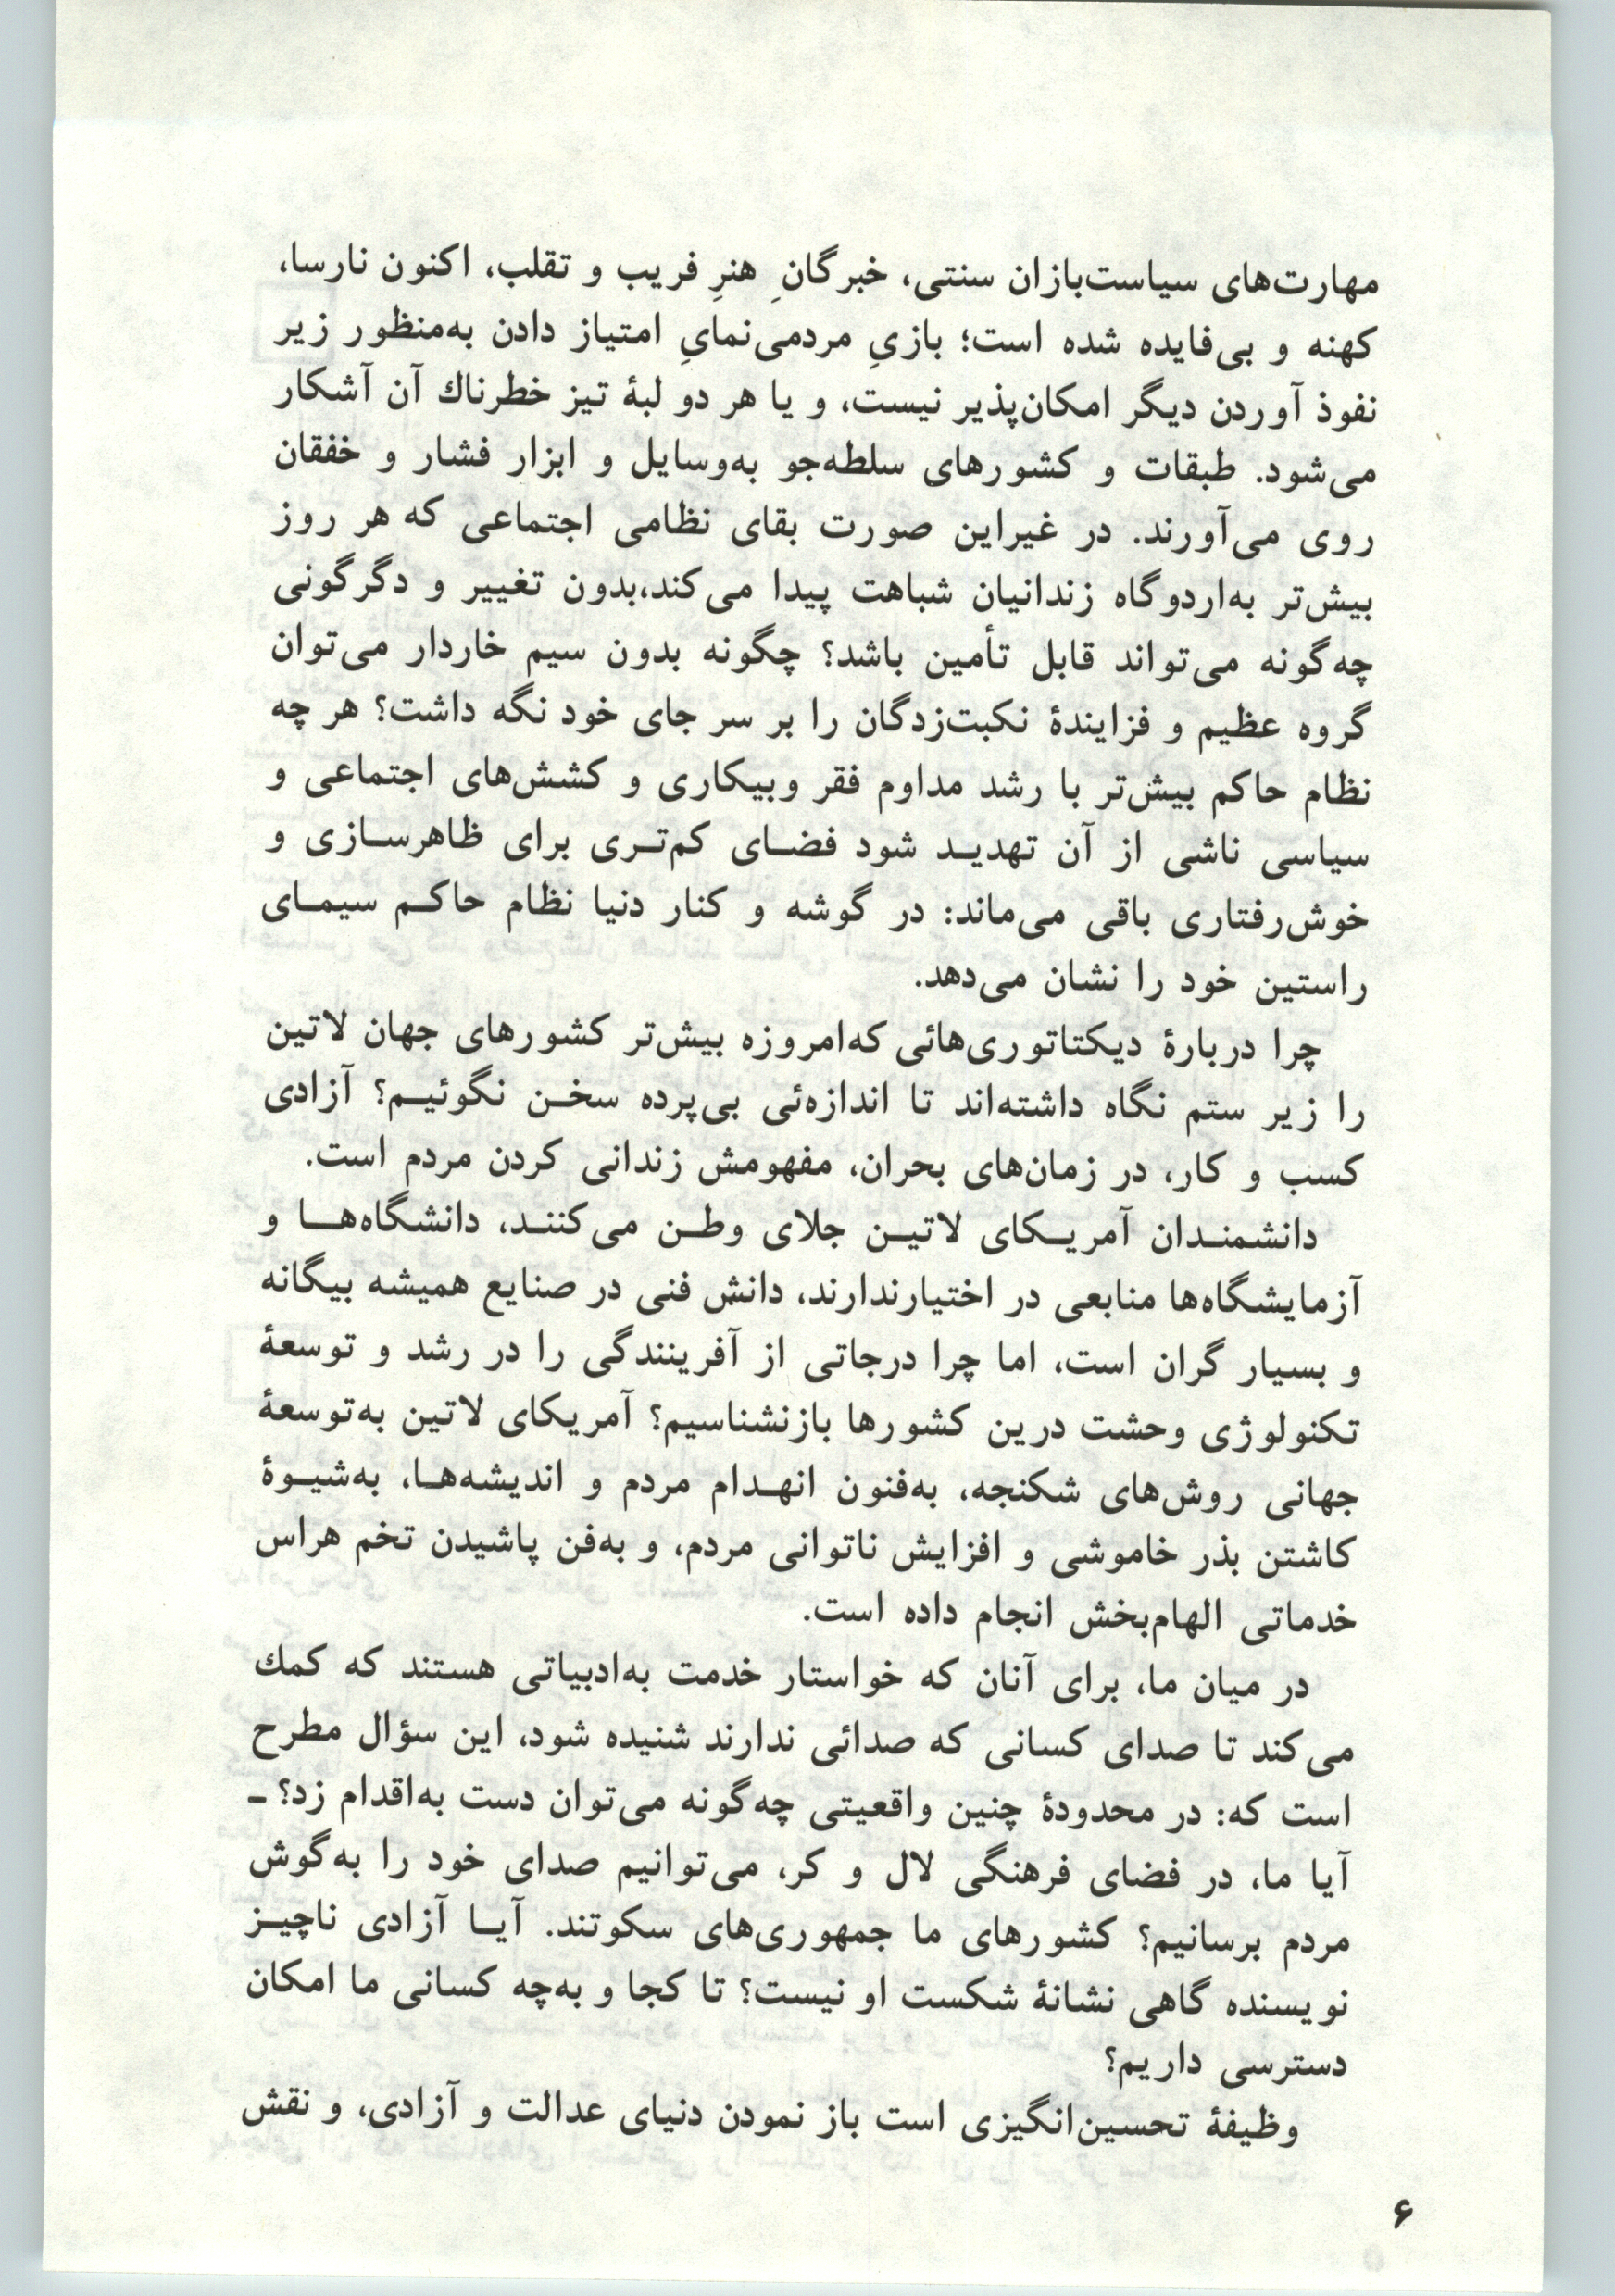 مهارت‌های سیاست‌بازان سنتی، خبرگانِ هنرِ فریب و تقلب، اکنون نارسا،
کهنه و بی‌فایده شده است؛ بازیِ مردمی‌نمایِ امتیاز دادن به‌منظور زیر
نفوذ آوردن دیگر امکان‌پذیر نیست، و یا هر دو لبۀ تیز خطرناك آن آشکار
می‌شود. طبقات و کشورهای سلطه‌جو به‌وسایل و ابزار فشار و خفقان
روی می‌آورند. در غیراین صورت بقای نظامی اجتماعی که هر روز
بیش‌تر به‌اردوگاه زندانیان شباهت پیدا می‌کند،بدون تغییر و دگرگونی
چه‌گونه می‌تواند قابل تأمین باشد؟ چگونه بدون سیم خاردار می‌توان
گروه عظیم و فزایندۀ نکبت‌زدگان را بر سر جای خود نگه داشت؟ هر چه
نظام حاکم بیش‌تر با رشد مداوم فقر وبیکاری و کشش‌های اجتماعی و
سیاسی ناشی از آن تهدیـد شود فضـای کم‌تـری برای ظاهرسـازی و
خوش‌رفتاری باقی می‌ماند: در گوشه و کنار دنیا نظام حاکـم سیمـای
راستین خود را نشان می‌دهد.
چرا دربارۀ دیکتاتوری‌هائی که‌امروزه بیش‌تر کشورهای جهان لاتین
را زیر ستم نگاه داشته‌اند تا اندازه‌ئی بی‌پرده سخـن نگوئیـم؟ آزادی
کسب و کار، در زمان‌های بحران، مفهومش زندانی کردن مردم است.
دانشمنـدان آمریـکای لاتیـن جلای وطـن می‌کننـد، دانشگاه‌هـا و
آزمایشگاه‌ها منابعی در اختیارندارند، دانش فنی در صنایع همیشه بیگانه
و بسیار گران است، اما چرا درجاتی از آفرینندگی را در رشد و توسعۀ
تکنولوژی وحشت درین کشورها بازنشناسیم؟ آمریکای لاتین به‌توسعۀ
جهانی روش‌های شکنجه، به‌فنون انهـدام مردم و اندیشه‌هـا، به‌شیـوۀ
کاشتن بذر خاموشی و افزایش ناتوانی مردم، و به‌فن پاشیدن تخم هراس
خدماتی الهام‌بخش انجام داده است.
در میان ما، برای آنان که خواستار خدمت به‌ادبیاتی هستند که کمك
می‌کند تا صدای کسانی که صدائی ندارند شنیده شود، این سؤال مطرح
است که: در محدودۀ چنین واقعیتی چه‌گونه می‌توان دست به‌اقدام زد؟ –
آیا ما، در فضای فرهنگی لال و کر، می‌توانیم صدای خود را به‌گوش
مردم برسانیم؟ کشورهای ما جمهوری‌های سکوتند. آیـا آزادی ناچیـز
نویسنده گاهی نشانۀ شکست او نیست؟ تا کجا و به‌چه کسانی ما امکان
دسترسی داریم؟
وظیفۀ تحسین‌انگیزی است باز نمودن دنیای عدالت و آزادی، و نقش
۶